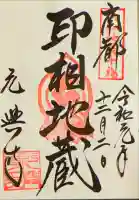 南都
令和元年
十二月二日
印相地蔵
元興寺